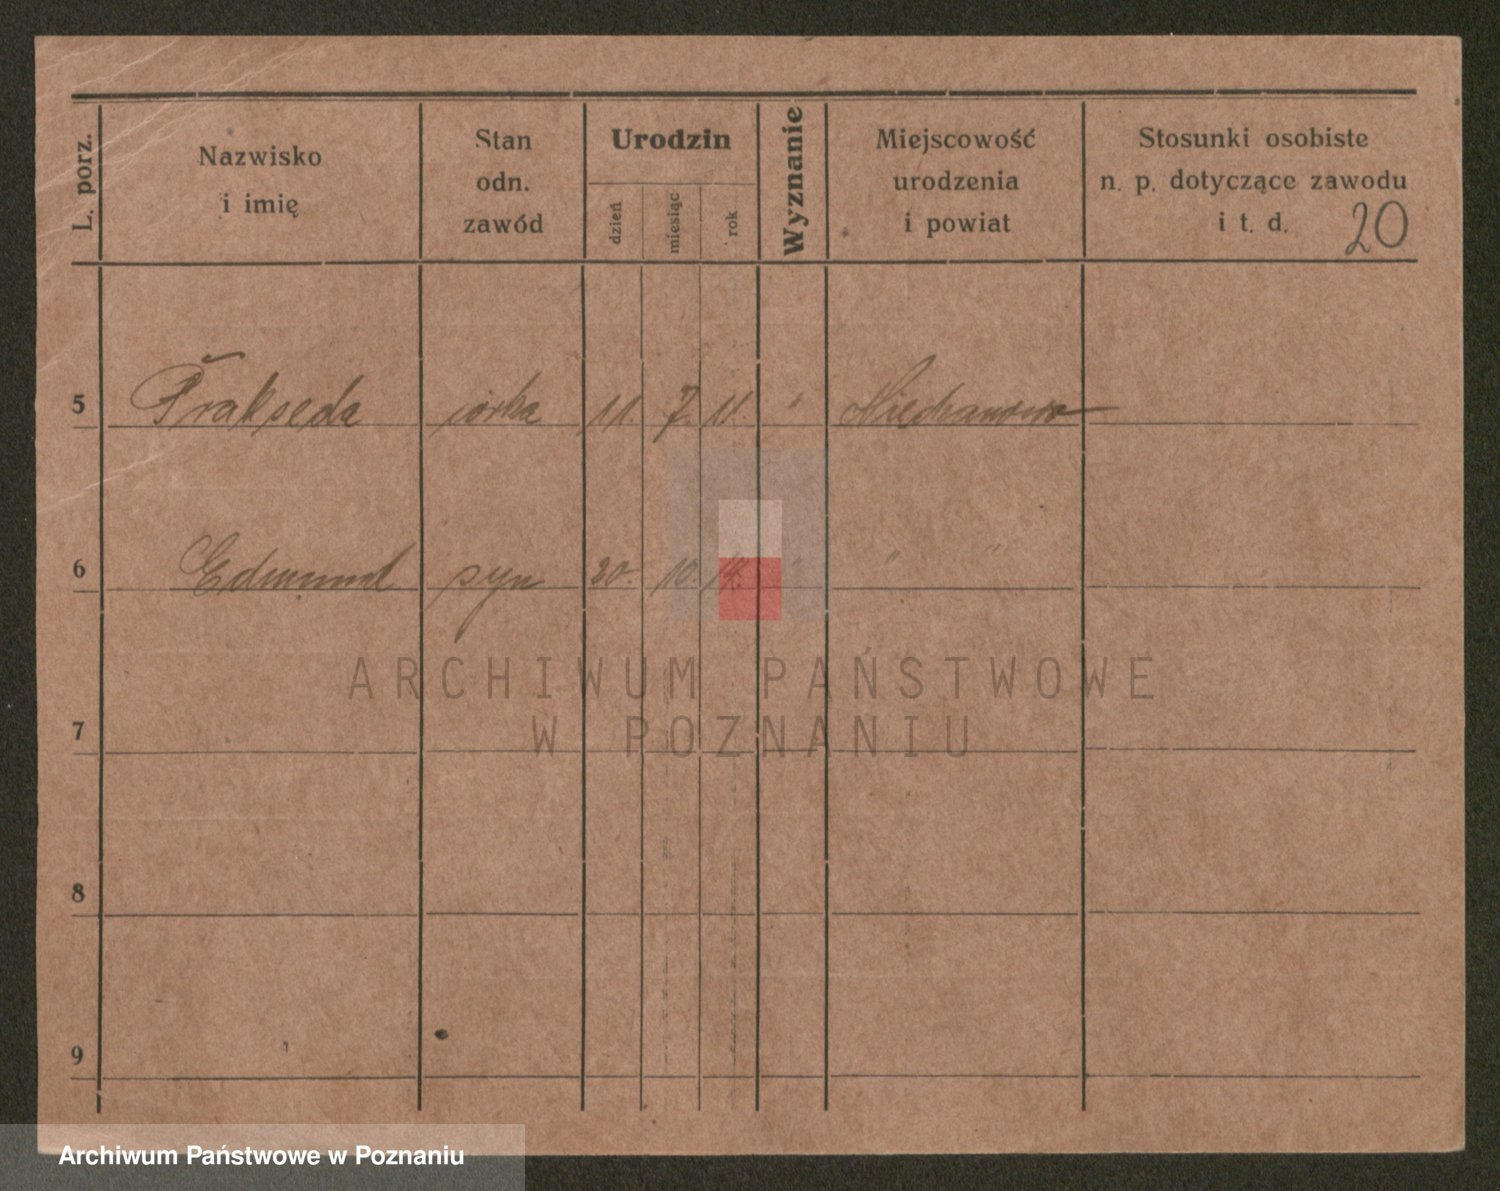 L. porz.
Nazwisko
i imię
Stan
odn.
zawód
Urodzin
dzień
miesiąc
rok
Wyznanie
Miejscowość
urodzenia
i powiat
Stosunki osobiste
n. p. dotyczące zawodu
i t. d.
20
5 Prakseda córka 11. 7. 11. " Niechanowo
6 Edmund syn 20. 10. 14. " " "
7
8
9
ARCHIWUM PAŃSTWOWE
W POZNANIU
Archiwum Państwowe w Poznaniu